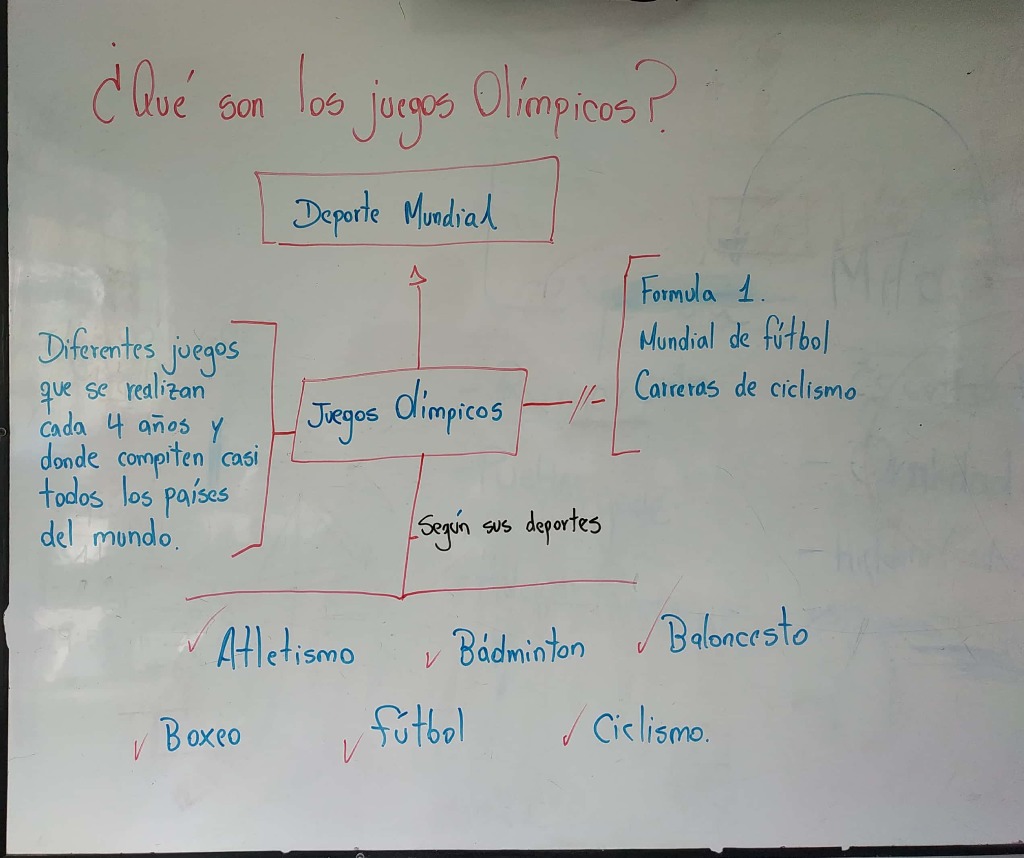 ¿Qué son los juegos Olímpicos?
Deporte Mundial
Formula 1.
Mundial de fútbol
Carreras de ciclismo
Diferentes juegos
que se realizan
cada 4 años y
donde compiten casi
todos los países
del mundo.
Juegos Olímpicos
Según sus deportes
Atletismo
Bádminton
Baloncesto
Boxeo
fútbol
Ciclismo.